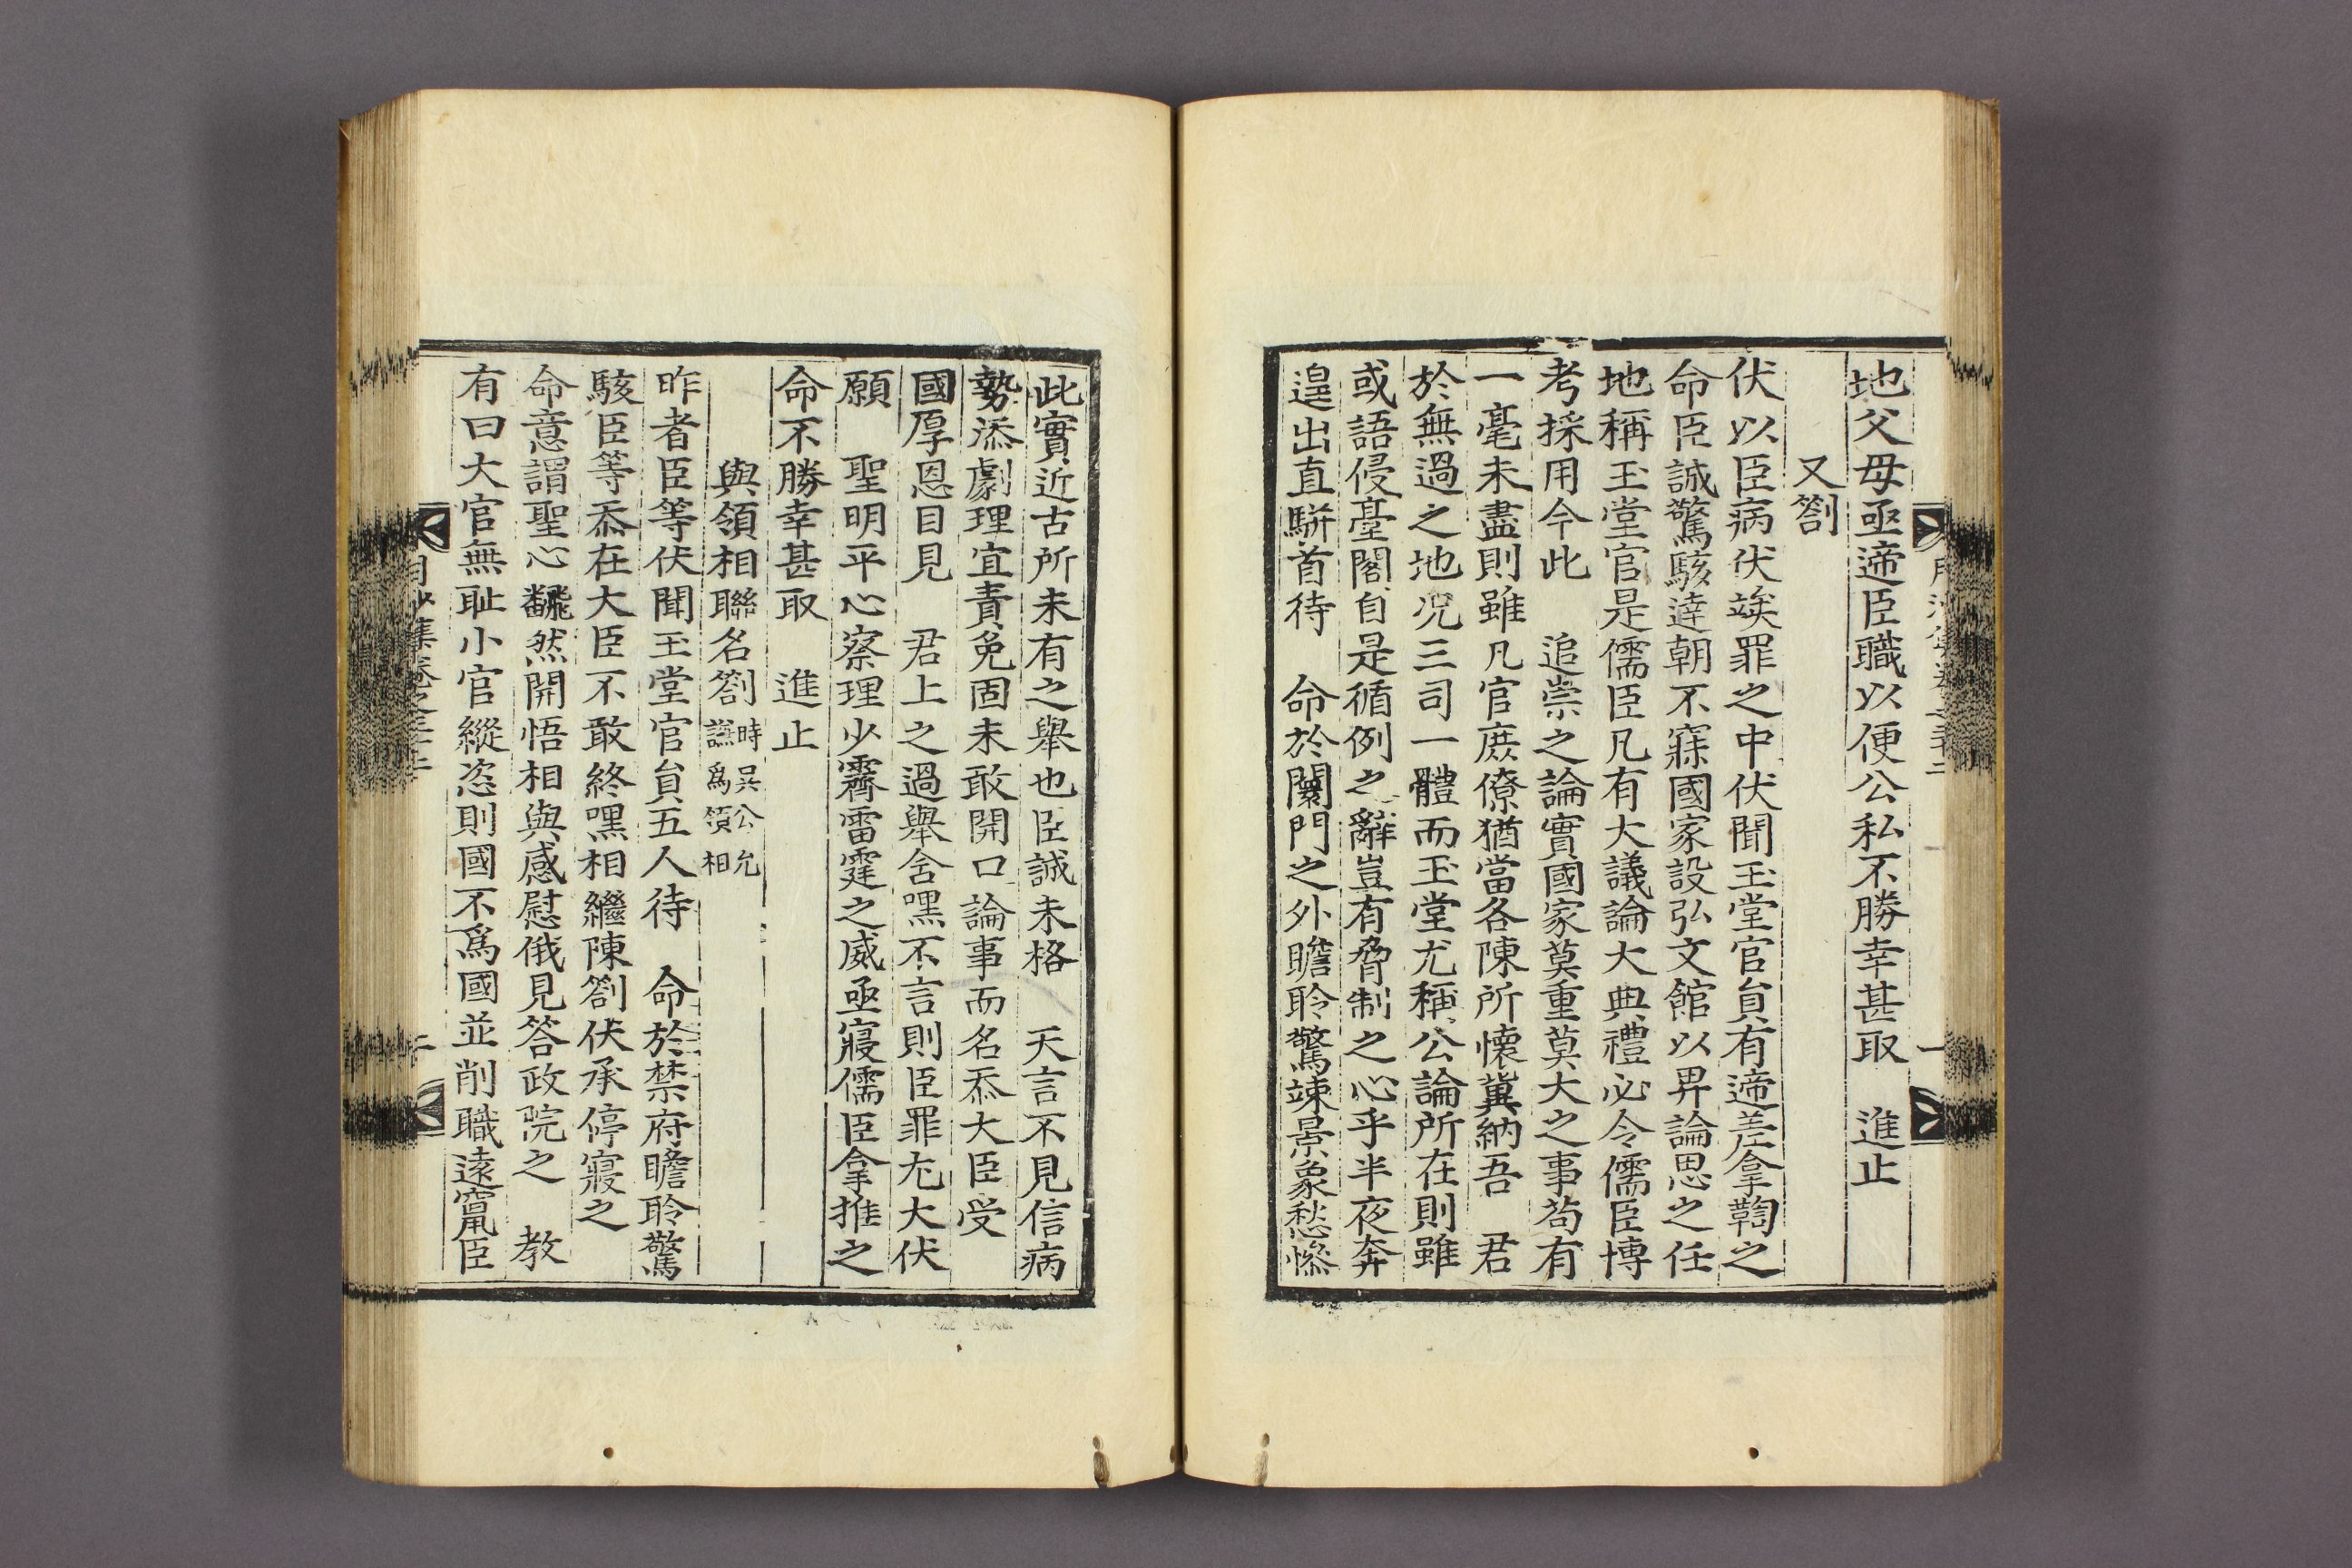 地父母亟遞臣職以便公私不勝幸甚取 進止
又劄
伏以臣病伏竢罪之中伏聞玉堂官員有遞差拿鞫之
命臣誠驚駭達朝不寐國家設弘文館以畀論思之任
地稱玉堂官是儒臣凡有大議論大典禮必令儒臣博
考採用今此 追崇之論實國家莫重莫大之事苟有
一毫未盡則雖凡官庶僚猶當各陳所懷冀納吾 君
於無過之地况三司一體而玉堂尤稱公論所在則雖
或語侵臺閣自是循例之辭豈有脅制之心乎半夜奔
遑出直騈首待 命於闕門之外瞻聆驚竦景象愁慘
此實近古所未有之舉也臣誠未格 天言不見信病
勢添劇理宜責免固未敢開口論事而名忝大臣受
國厚恩目見 君上之過舉含嘿不言則臣罪尤大伏
願 聖明平心察理少霽雷霆之威亟寢儒臣拿推之
命不勝幸甚取 進止
與領相聯名劄 時吳公允謙爲領相
昨者臣等伏聞玉堂官員五人待 命於禁府瞻聆驚
駭臣等忝在大臣不敢終嘿相繼陳劄伏承停寢之
命意謂聖心飜然開悟相與感慰俄見答政院之 教
有曰大官無耻小官縱恣則國不爲國並削職遠竄臣
月沙集卷之三十二
二